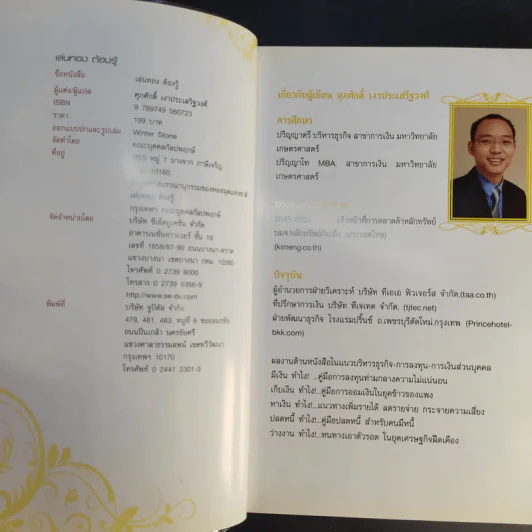 เล่นทอง ต้องรู้
ชื่อหนังสือ เล่นทอง ต้องรู้
ผู้แต่ง/ผู้แปล ศุภศักดิ์ เงาประเสริฐวงศ์
ISBN 9 789749 560723
ราคา 199 บาท
ออกแบบปกและรูปเล่ม Winter Stone
จัดทำโดย คณะบุคคลกัลปพฤกษ์
ที่อยู่ หมู่ 1 บางจาก ภาษีเจริญ
10160
เล่นทอง ต้องรู้
กรุงเทพฯ คณะบุคคลกัลปพฤกษ์
จัดจำหน่ายโดย บริษัท ซีเอ็ดยูเคชั่น จำกัด
อาคารเนชั่นทาวเวอร์ ชั้น 19
เลขที่ 1858/87-90 ถนนบางนา-ตราด
แขวงบางนา เขตบางนา กทม. 10260
โทรศัพท์ 0 2739 8000
โทรสาร 0 2739 5356-9
http://www.se-ed.com
พิมพ์ที่
479, 481, 483, หมู่ที่ 6
ถนนปิ่นเกล้า นครชัยศรี
แขวงศาลาธรรมสพน์ เขตทวีวัฒนา
กรุงเทพฯ 10170
โทรศัพท์ 0 2441 2301-3
เกี่ยวกับผู้เขียน ศุภศักดิ์ เงาประเสริฐวงศ์
การศึกษา
ปริญญาตรี บริหารธุรกิจ สาขาการเงิน มหาวิทยาลัย
เกษตรศาสตร์
ปริญญาโท MBA สาขาการเงิน มหาวิทยาลัย
เกษตรศาสตร์
เจ้าหน้าที่การตลาดค้าหลักทรัพย์
บมจ.หลักทรัพย์กิมเอ็ง (ประเทศไทย)
(kimeng.co.th)
ปัจจุบัน
ผู้อำนวยการฝ่ายวิเคราะห์ บริษัท ทีเอเอ ฟิวเจอร์ส จำกัด.(taa.co.th)
ที่ปรึกษาการเงิน บริษัท ทีเจเทค จำกัด, (tjtec.net)
ฝ่ายพัฒนาธุรกิจ โรงแรมปริ๊นซ์ ถ.เพชรบุรีตัดใหม่.กรุงเทพ (Princehotel-
bkk.com)
ผลงานด้านหนังสือในแนวบริหารธุรกิจ-การลงทุน-การเงินส่วนบุคคล
มีเงิน ทำไง!...คู่มือการลงทุนท่ามกลางความไม่แน่นอน
เก็บเงิน ทำไง!...คู่มือการออมเงินในยุคข้าวของแพง
หาเงิน ทำไง!...แนวทางเพิ่มรายได้ ลดรายจ่าย กระจายความเสี่ยง
ปลดหนี้ ทำไง!...คู่มือปลดหนี้ สำหรับคนมีหนี้
ว่างงาน ทำไง!...หนทางเอาตัวรอด ในยุคเศรษฐกิจฝืดเคือง